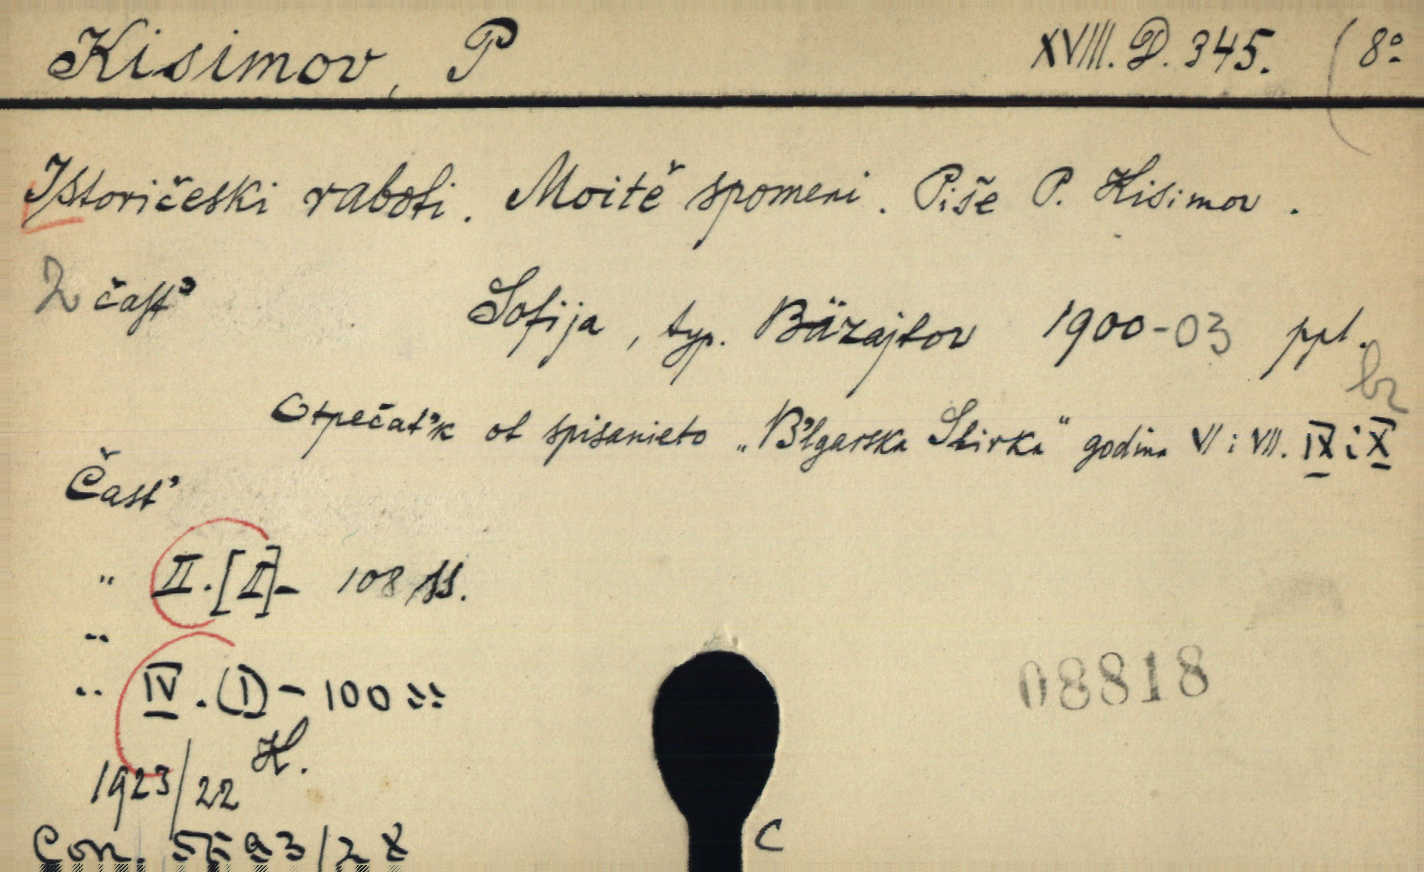 Kisimov, P XVIII. D. 345. (8º
Istoričeski raboti. Moitě spomeni. Piše P. Kisimov.
2 čast' Sofija, typ. Bäzajtov 1900-03 ppl.
br
Otpečat'k ot spisanieto „B'lgarska Sbirka" godina VI i VII. IX i X
Čast'
" II. [I] - 108 ss.
"
" IV. (I) - 100 "
1923/22 H.
C
08818